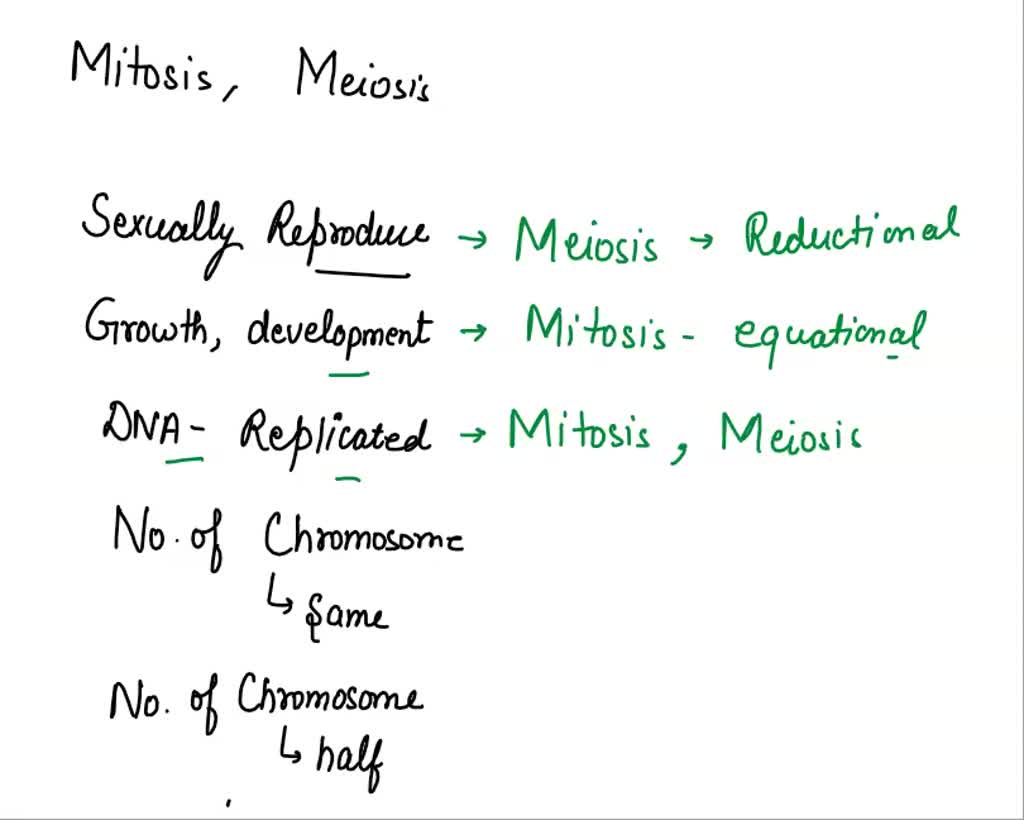 Mitosis, Meiosis
Sexually Reproduce → Meiosis → Reductional
Growth, development → Mitosis - equational
DNA - Replicated → Mitosis, Meiosis
No. of Chromosome
↳ Same
No. of Chromosome
↳ half